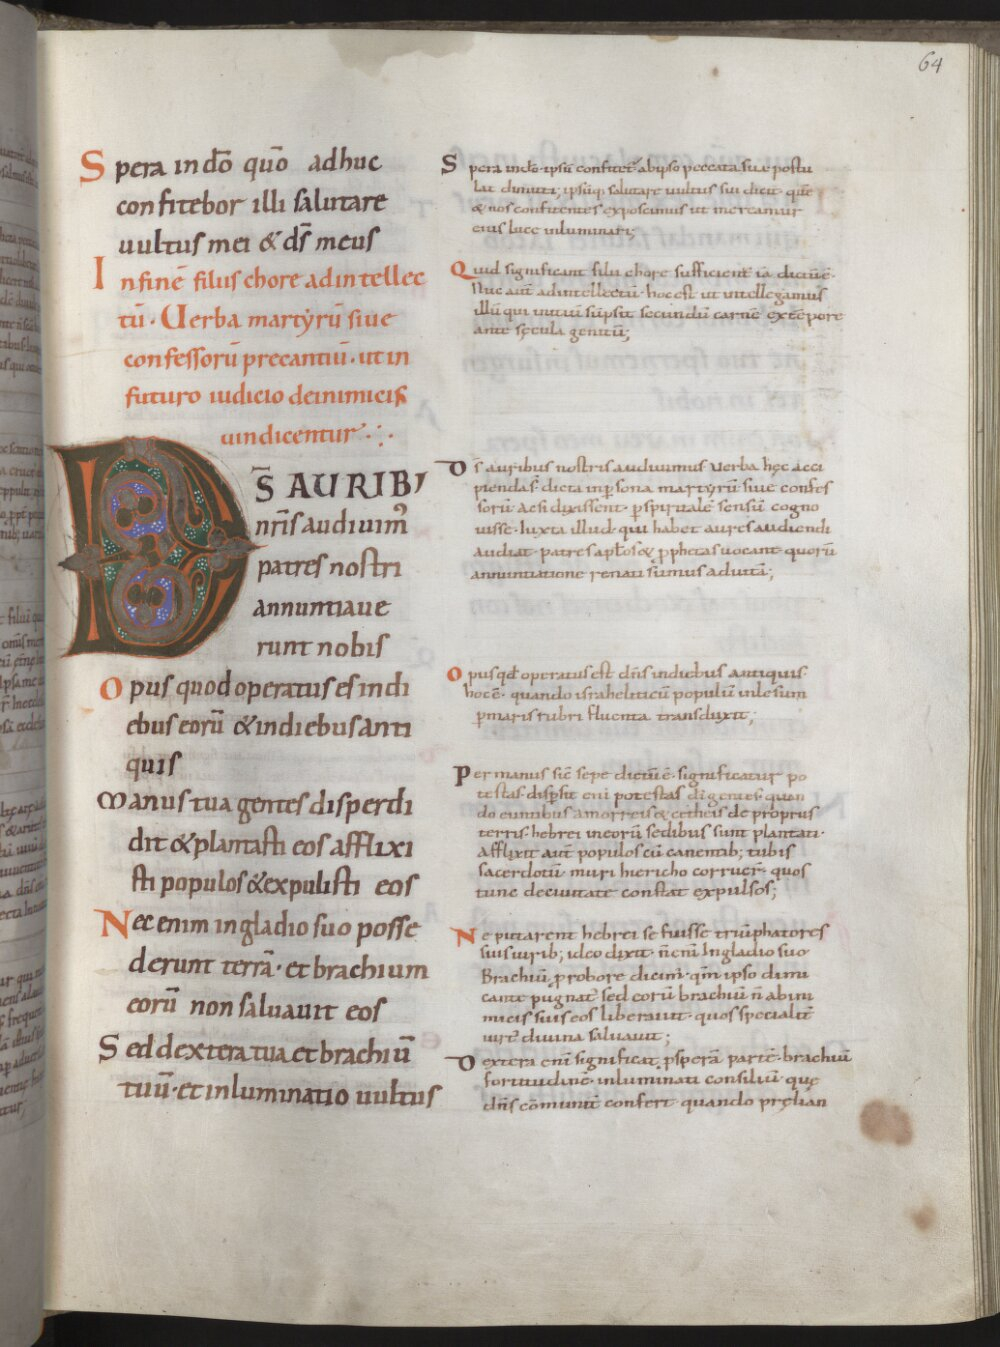 64
Spera in dō qūo adhuc
confitebor illi salutare
uultus mei & d̄s meus
Infinē filiis chore ad intellec
tū · Uerba martyrū siue
confessorū precantiū · ut in
futuro iudicio de inimicis
uindicentur
D̄S AURIB'
nr̄is audiuim̄
patres nostri
annuntiaue
runt nobis
Opus quod operatus es in di
ebus eorū & in diebus anti
quis
Manus tua gentes disperdi
dit & plantasti eos afflixi
sti populos & expulisti eos
Nec enim in gladio suo posse
derunt terrā · et brachium
eorū non saluauit eos
Sed dextera tua et brachiū
tuū · et inluminatio uultus
Spera in dō · ipsū confiteri ab ipso peccata sua postu
lat dimitti; ipsūq; salutare uultus sui dicit · quē
& nos confitentes exposcimus ut mereamur
eius luce inluminari;
Quid significant filii chore sufficient̄ iā dictū ē ·
Siue aut̄ ad intellectū · hoc est ut intellegamus
illū qui uitiū sūpsit secundū carnē extēpore
ante sęcula genitū;
D̄s auribus nostris audiuimus uerba hęc acci
piendas · dicta in p̱sona martyrū siue confes
sorū ac si dixissent · p̱ spiritale sensū cogno
uisse · Iuxta illud · qui habet aures audiendi
audiat · patres ap̄los & p̱phetas uocant · quorū
annuntiatione renati sumus ad uitā;
Opus qđ operatus est dn̄s in diebus antiquis ·
hoc ē · quando israheliticū populū inlesum
p̱ maris rubri fluenta transduxit;
Per manus sic̄ sepe dictū ē · significatur po
testas · disp̱sit eni potestas di gentes · quan
do eunitibus amorreis & etheis de propriis
terris · hebrei in eorū sedibus sunt plantati ·
Afflixit aut̄ populos cū canentib; tubis
sacerdotū · muri hiericho corruer̄ · quos
tunc de ciuitate constat expulsos;
Ne putarent hebrei se fuisse triūphatores
suis uirib; ideo dixit · n̄ enī In gladio suo
Brachiū p̱ robore dicim̄ · qm̄ ipso dimi
cante pugnat̄ sed eorū brachiū n̄ ab ini
micis suis eos liberauit · quos specialit̄
uirt̄ diuina saluauit;
Dextera enī significat p̱sperā partē · brachiū
fortitudinē · inluminati consiliū · quę
dn̄s cōmunit̄ confert · quando prelian